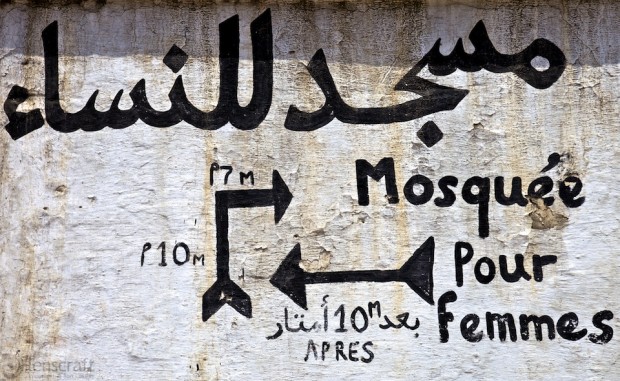 مسجد للنساء
P7M
Mosquée
P10M
Pour
femmes
بعد 10M أمتار
APRES